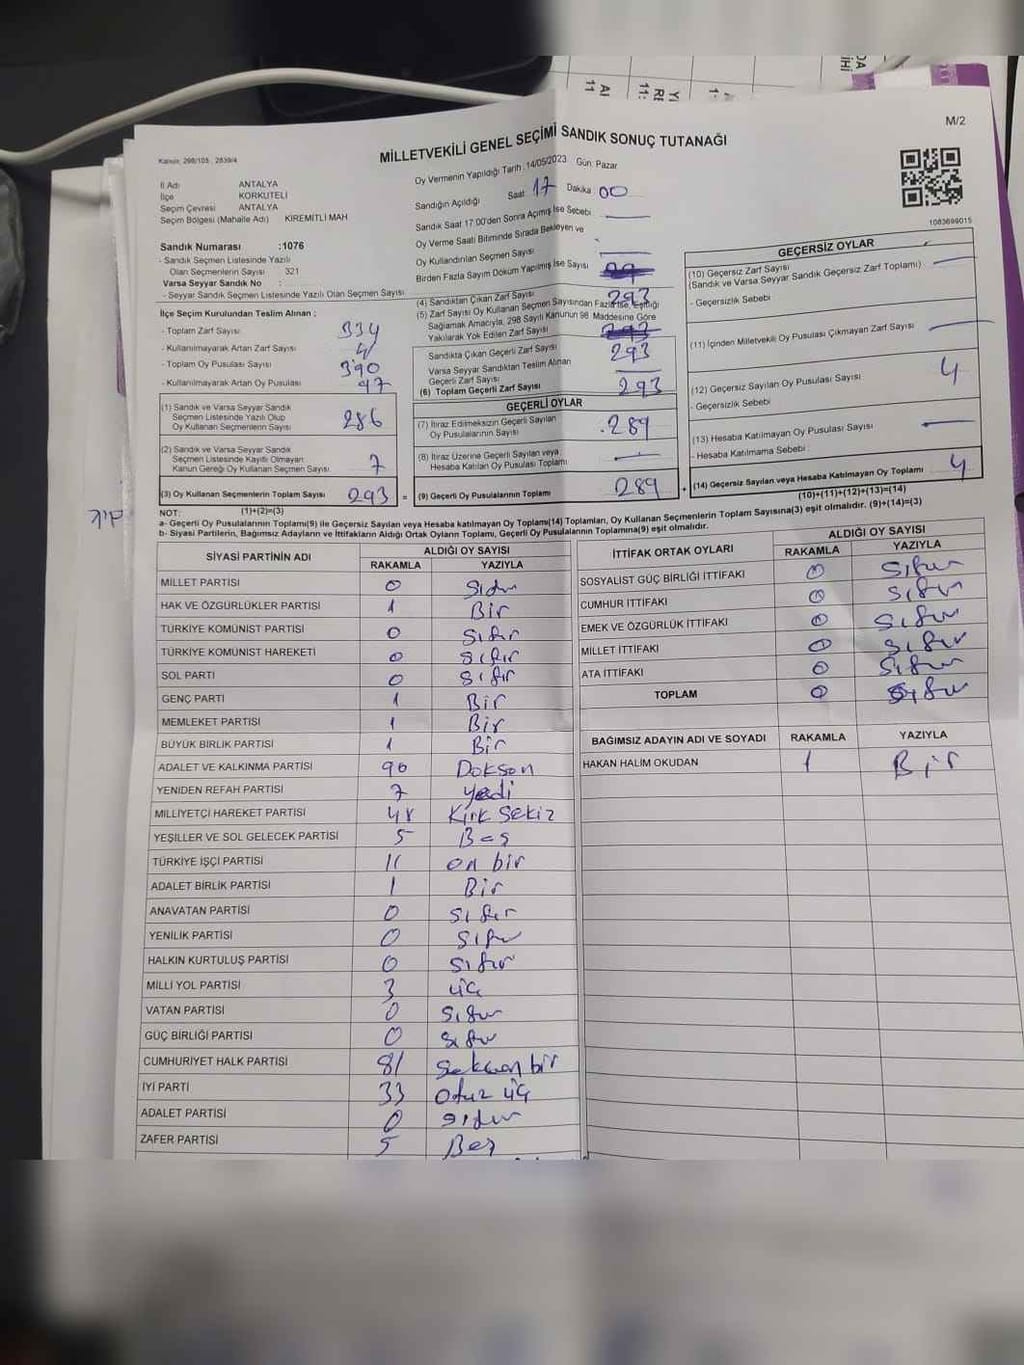 M/2
Kanun: 298/105 , 2839/4
MİLLETVEKİLİ GENEL SEÇİMİ SANDIK SONUÇ TUTANAĞI
1083699015
İl Adı ANTALYA
İlçe KORKUTELİ
Seçim Çevresi ANTALYA
Seçim Bölgesi (Mahalle Adı) KİREMİTLİ MAH
Sandık Numarası :1076
- Sandık Seçmen Listesinde Yazılı
Olan Seçmenlerin Sayısı 321
Varsa Seyyar Sandık No :
- Seyyar Sandık Seçmen Listesinde Yazılı Olan Seçmen Sayısı
İlçe Seçim Kurulundan Teslim Alınan ;
- Toplam Zarf Sayısı 334
- Kullanılmayarak Artan Zarf Sayısı
- Toplam Oy Pusulası Sayısı 390
- Kullanılmayarak Artan Oy Pusulası 97
(1) Sandık ve Varsa Seyyar Sandık
Seçmen Listesinde Yazılı Olup
Oy Kullanan Seçmenlerin Sayısı 286
(2) Sandık ve Varsa Seyyar Sandık
Seçmen Listesinde Kayıtlı Olmayan
Kanun Gereği Oy Kullanan Seçmen Sayısı 7
(3) Oy Kullanan Seçmenlerin Toplam Sayısı 293 =
(1)+(2)=(3)
Oy Vermenin Yapıldığı Tarih : 14/05/2023 Gün: Pazar
Sandığın Açıldığı Saat 17 Dakika 00
Sandık Saat 17:00'den Sonra Açılmış İse Sebebi
Oy Verme Saati Bitiminde Sırada Bekleyen ve
Oy Kullandırılan Seçmen Sayısı
Birden Fazla Sayım Döküm Yapılmış İse Sayısı
(4) Sandıktan Çıkan Zarf Sayısı 293
(5) Zarf Sayısı Oy Kullanan Seçmen Sayısından Fazla İse, Eşitliği
Sağlamak Amacıyla, 298 Sayılı Kanunun 98. Maddesine Göre
Yakılarak Yok Edilen Zarf Sayısı
Sandıkta Çıkan Geçerli Zarf Sayısı 293
Varsa Seyyar Sandıktan Teslim Alınan
Geçerli Zarf Sayısı
(6) Toplam Geçerli Zarf Sayısı 293
GEÇERLİ OYLAR
(7) İtiraz Edilmeksizin Geçerli Sayılan
Oy Pusulalarının Sayısı 289
(8) İtiraz Üzerine Geçerli Sayılan veya
Hesaba Katılan Oy Pusulası Toplamı
(9) Geçerli Oy Pusulalarının Toplamı 289 +
GEÇERSİZ OYLAR
(10) Geçersiz Zarf Sayısı
(Sandık ve Varsa Seyyar Sandık Geçersiz Zarf Toplamı)
- Geçersizlik Sebebi
(11) İçinden Milletvekili Oy Pusulası Çıkmayan Zarf Sayısı
(12) Geçersiz Sayılan Oy Pusulası Sayısı 4
- Geçersizlik Sebebi
(13) Hesaba Katılmayan Oy Pusulası Sayısı
- Hesaba Katılmama Sebebi :
(14) Geçersiz Sayılan veya Hesaba Katılmayan Oy Toplamı 4
(10)+(11)+(12)+(13)=(14)
NOT:
a- Geçerli Oy Pusulalarının Toplamı(9) ile Geçersiz Sayılan veya Hesaba katılmayan Oy Toplamı(14) Toplamları, Oy Kullanan Seçmenlerin Toplam Sayısına(3) eşit olmalıdır. (9)+(14)=(3)
b- Siyasi Partilerin, Bağımsız Adayların ve İttifakların Aldığı Oy Ortak Oyların Toplamı, Geçerli Oy Pusulalarının Toplamına(9) eşit olmalıdır.
SİYASİ PARTİNİN ADI ALDIĞI OY SAYISI
RAKAMLA YAZIYLA
MİLLET PARTİSİ 0 Sıfır
HAK VE ÖZGÜRLÜKLER PARTİSİ 1 Bir
TÜRKİYE KOMÜNİST PARTİSİ 0 Sıfır
TÜRKİYE KOMÜNİST HAREKETİ 0 sıfır
SOL PARTİ 0 sıfır
GENÇ PARTİ 1 Bir
MEMLEKET PARTİSİ 1 Bir
BÜYÜK BİRLİK PARTİSİ 1 Bir
ADALET VE KALKINMA PARTİSİ 90 Doksan
YENİDEN REFAH PARTİSİ 7 yedi
MİLLİYETÇİ HAREKET PARTİSİ 48 Kırk Sekiz
YEŞİLLER VE SOL GELECEK PARTİSİ 5 Beş
TÜRKİYE İŞÇİ PARTİSİ 11 on bir
ADALET BİRLİK PARTİSİ 1 Bir
ANAVATAN PARTİSİ 0 sıfır
YENİLİK PARTİSİ 0 sıfır
HALKIN KURTULUŞ PARTİSİ 0 sıfır
MİLLİ YOL PARTİSİ 3 üç
VATAN PARTİSİ 0 sıfır
GÜÇ BİRLİĞİ PARTİSİ 0 sıfır
CUMHURİYET HALK PARTİSİ 81 Seksen bir
İYİ PARTİ 33 Otuz üç
ADALET PARTİSİ 0 sıfır
ZAFER PARTİSİ 5 Beş
İTTİFAK ORTAK OYLARI ALDIĞI OY SAYISI
RAKAMLA YAZIYLA
SOSYALİST GÜÇ BİRLİĞİ İTTİFAKI 0 Sıfır
CUMHUR İTTİFAKI 0 sıfır
EMEK VE ÖZGÜRLÜK İTTİFAKI 0 sıfır
MİLLET İTTİFAKI 0 sıfır
ATA İTTİFAKI 0 sıfır
TOPLAM 0 sıfır
BAĞIMSIZ ADAYIN ADI VE SOYADI RAKAMLA YAZIYLA
HAKAN HALİM OKUDAN 1 Bir